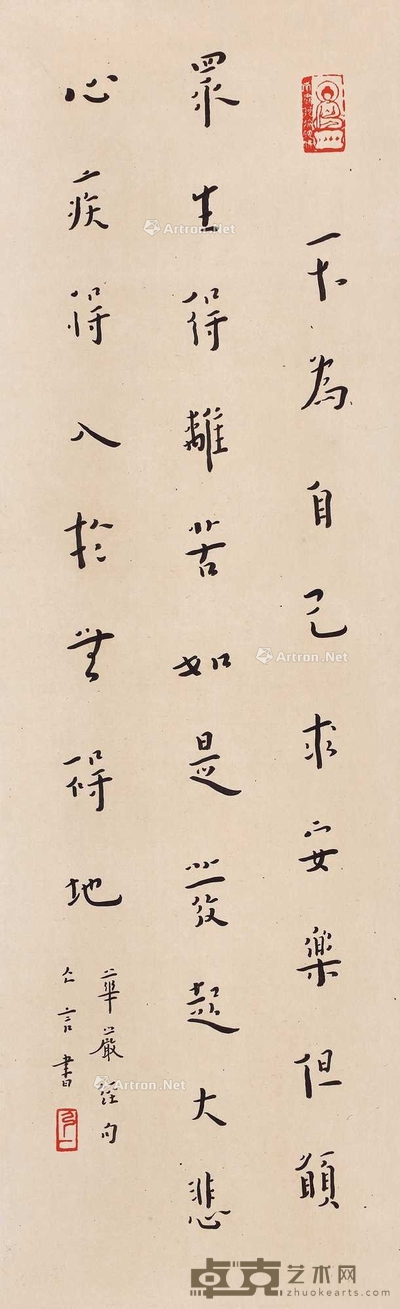 不為自己求安樂但願
眾生得離苦如是發起大悲
心疾得入於無碍地
華嚴經句
亡言書
Artron.Net
Artron.Net
Artron.Net
卓克艺术网
zhuokearts.com